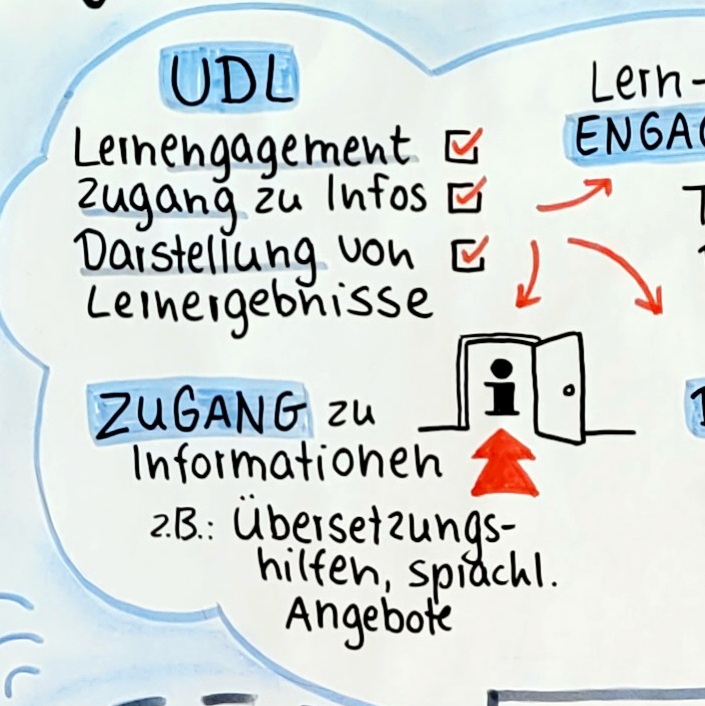 UDL
Lernengagement
Zugang zu Infos
Darstellung von
Lernergebnisse
Lern-
ZUGANG zu
Informationen
z.B.: Übersetzungs-
hilfen, sprachl.
Angebote
i